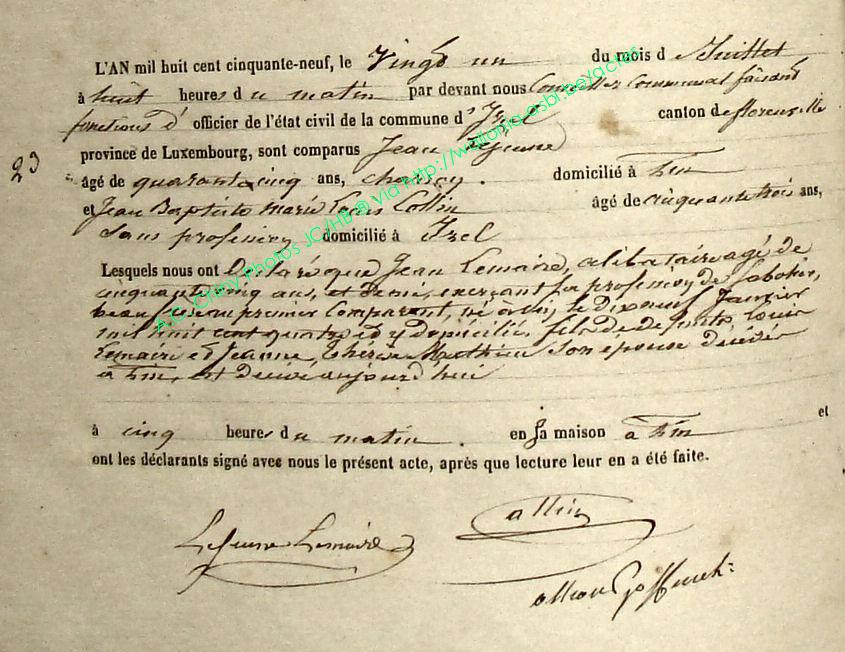 L'AN mil huit cent cinquante-neuf, le Vingt un du mois d Juillet
à huit heures du matin par devant nous Conseiller communal faisant
fonctions d' officier de l'état civil de la commune d'Izel canton de florenville
province de Luxembourg, sont comparus Jean Lejeune
23
âgé de quarante cinq ans, charron. domicilié à Pin
et Jean Baptiste Marie Louis Collin âgé de cinquante trois ans,
sans profession domicilié à Izel
Lesquels nous ont Déclaré que Jean Lemaire, célibataire agé de
cinquante cinq ans, et demi, exerçant la profession de sabotier,
beau frère au premier comparant, né à Pin, le dix neuf Janvier
mil huit cent quatre et y domicilié, fils de defunts Louis
Lemaire et Jeanne Thérèse Mathieu son epouse décédés
à Pin, est décédé aujourd'hui
à cinq heures du matin. en sa maison à Pin et
ont les déclarants signé avec nous le présent acte, après que lecture leur en a été faite.
Lejeune Lemaire
A.E. Chiny Photos JC/HB @ via http://wallonia-asbl.be/actes